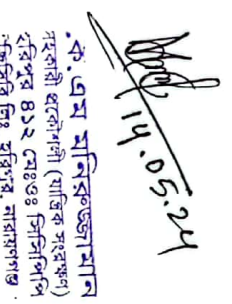 14.05.24
এ.কে. এম মনিরুজ্জামান
সহকারী প্রকৌশলী (যান্ত্রিক সংরক্ষণ)
হরিপুর ৪১২ মেঃওঃ সিসিপিপি
হরিপুর, নারায়ণগঞ্জ